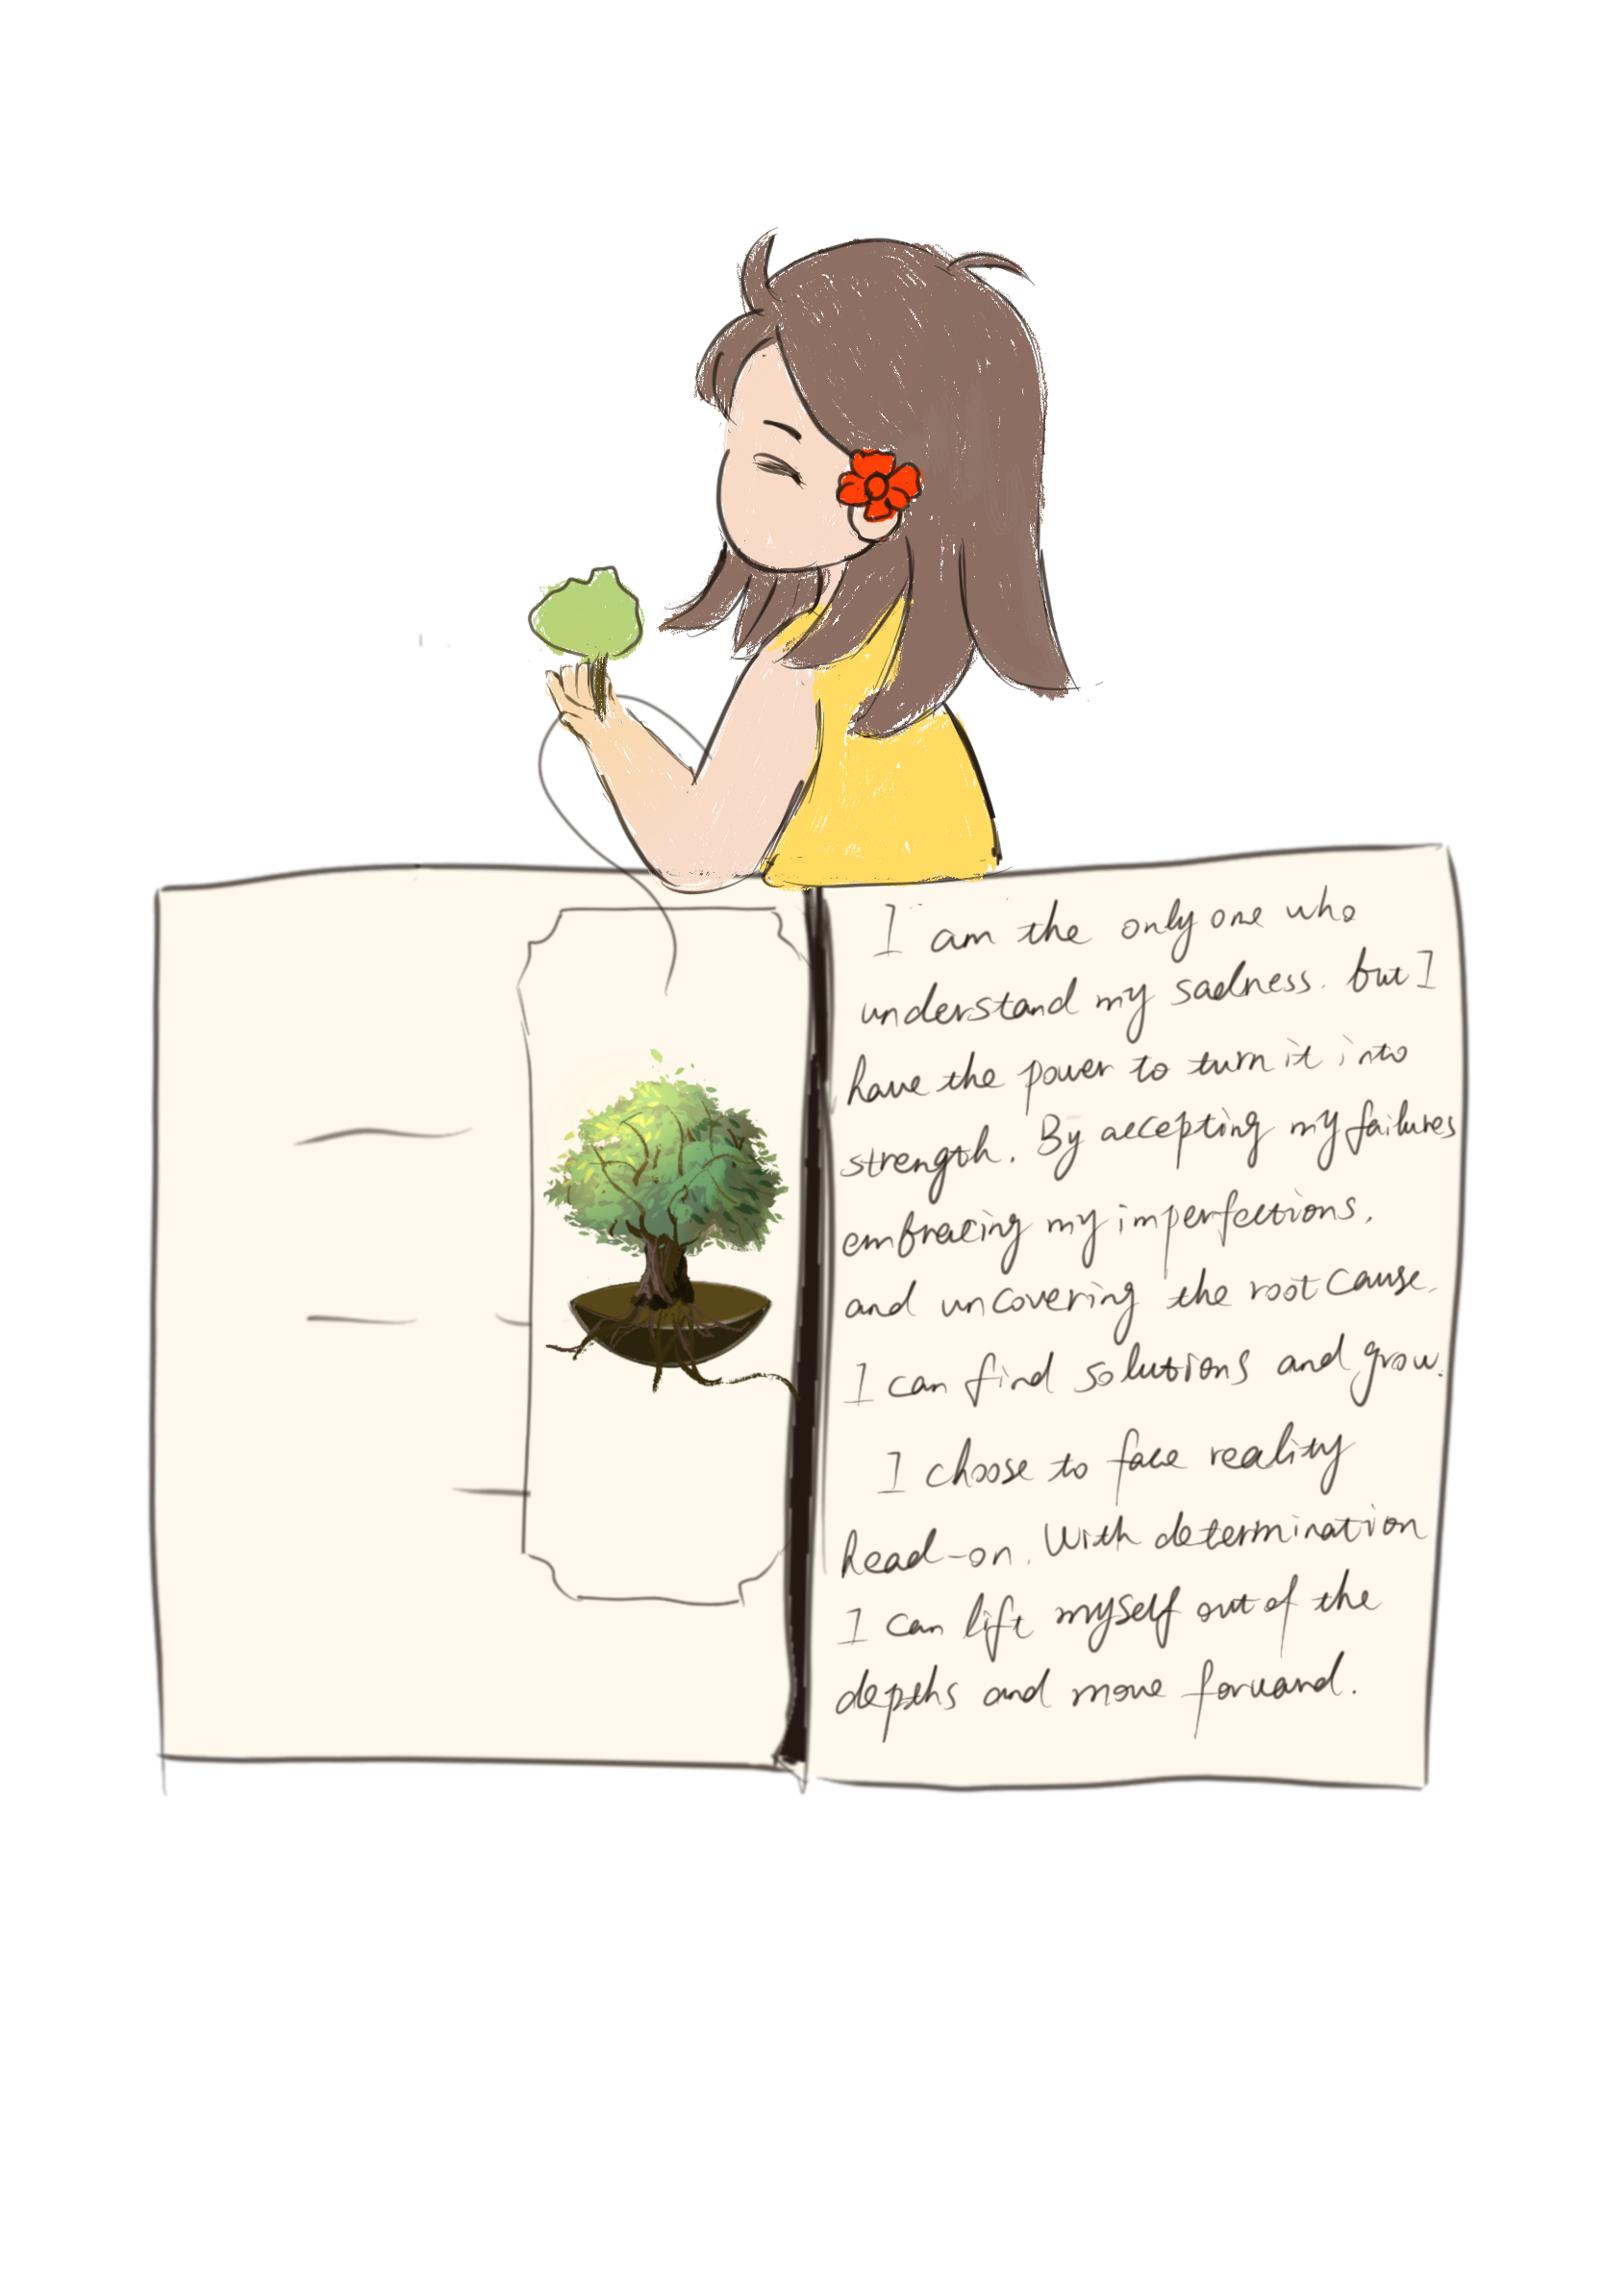 I am the only one who
understand my sadness. but I
have the power to turn it into
strength. By accepting my failures
embracing my imperfections.
and uncovering the root cause.
I can find solutions and grow.
I choose to face reality
head-on. With determination
I can lift myself out of the
depths and move forward.